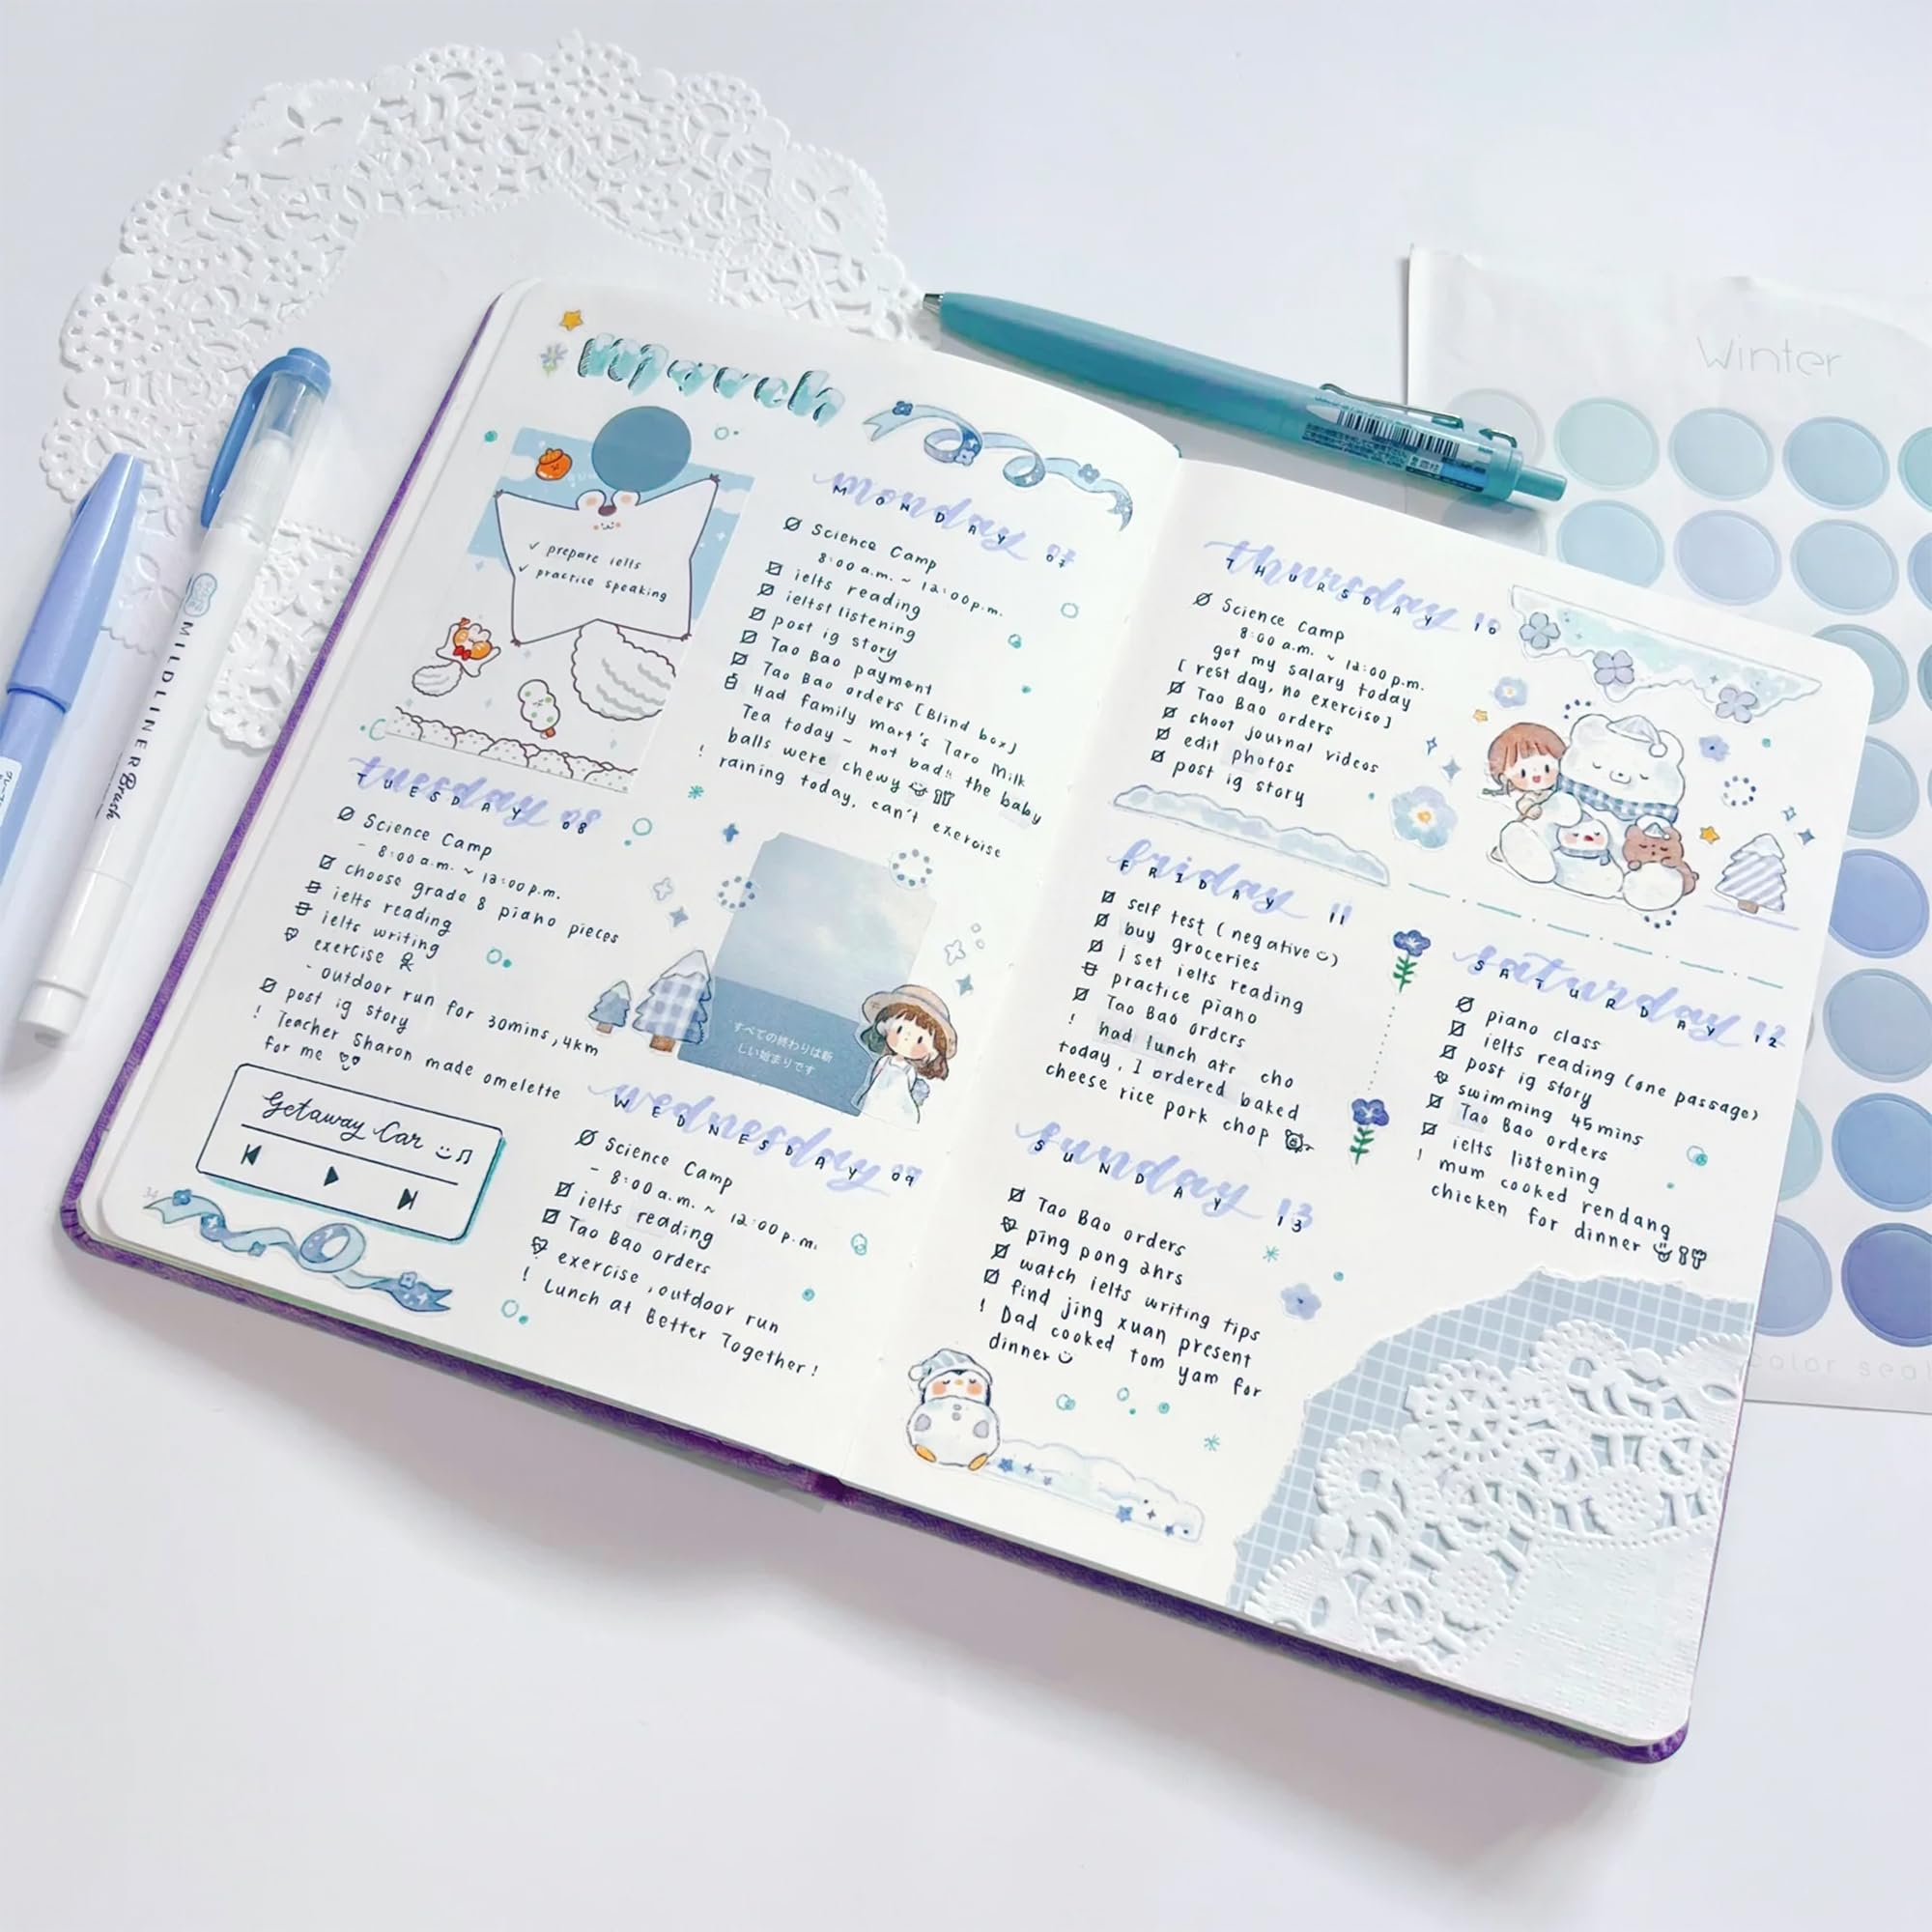 March
✓ prepare ielts
✓ practice speaking
monday
MONDAY 07
Science Camp
8:00 a.m. ~ 12:00 p.m.
ielts reading
ieltst listening
post ig story
Tao Bao payment
Tao Bao orders [Blind box]
Had family mart's Taro Milk
Tea today - not bad!! the baby
balls were chewy
! raining today, can't exercise
tuesday 08
TUESDAY 08
Science Camp
- 8:00 a.m. ~ 12:00 p.m.
choose grade 8 piano pieces
ielts reading
ielts writing
exercise
- outdoor run for 30mins, 4km
post ig story
! Teacher Sharon made omelette
for me
Getaway Car
34
すべての終わりは新
しい始まりです
wednesday 09
WEDNESDAY 09
Science Camp
- 8:00 a.m. ~ 12:00 p.m.
ielts reading
Tao Bao orders
exercise, outdoor run
! Lunch at Better Together!
thursday 10
THURSDAY 10
Science Camp
8:00 a.m. ~ 12:00 p.m.
got my salary today
[rest day, no exercise]
Tao Bao orders
shoot journal videos
edit photos
post ig story
friday 11
FRIDAY 11
self test (negative)
buy groceries
1 set ielts reading
practice piano
Tao Bao orders
! had lunch at cho
today, I ordered baked
cheese rice pork chop
saturday 12
SATURDAY 12
piano class
ielts reading (one passage)
post ig story
swimming 45mins
Tao Bao orders
ielts listening
! mum cooked rendang
chicken for dinner
sunday 13
SUNDAY 13
Tao Bao orders
ping pong 2hrs
watch ielts writing tips
find jing xuan present
! Dad cooked tom yam for
dinner
MILDLINER Brush
Winter
color seal